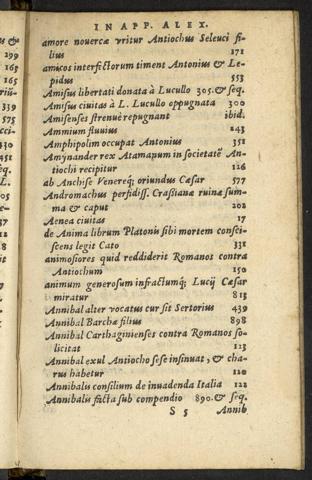 IN APP. ALEX.
amore nouercæ vritur Antiochus Seleuci fi-
lius 171
amicos interfectorum timent Antonius & Le-
pidus 553
Amisus libertati donata à Lucullo 305. & seq.
Amisus ciuitas à L. Lucullo oppugnata 300
Amisenses strenuè repugnant ibid.
Ammium fluuius 243
Amphipolim occupat Antonius 351
Amynander rex Atamanum in societatē An-
tiochi recipitur 126
ab Anchise Venereq; oriundus Cæsar 577
Andromachus perfidiss. Crassianæ ruinæ sum-
ma & caput 202
Aenea ciuitas 17
de Anima librum Platonis sibi mortem consci-
scens legit Cato 331
animosiores quid reddiderit Romanos contra
Antiochum 150
animum generosum infractumq; Lucij Cæsar
miratur 813
Annibal alter vocatus cur sit Sertorius 439
Annibal Barchæ filius 898
Annibal Carthaginienses contra Romanos so-
licitat 123
Annibal exul Antiocho sese insinuat, & cha-
rus habetur 120
Annibalis consilium de inuadenda Italia 122
Annibalis facta sub compendio 890. & seq.
S 5 Annib
us &
299
165
165
rriū-
339
575
cci-
430
351
us &
seq.